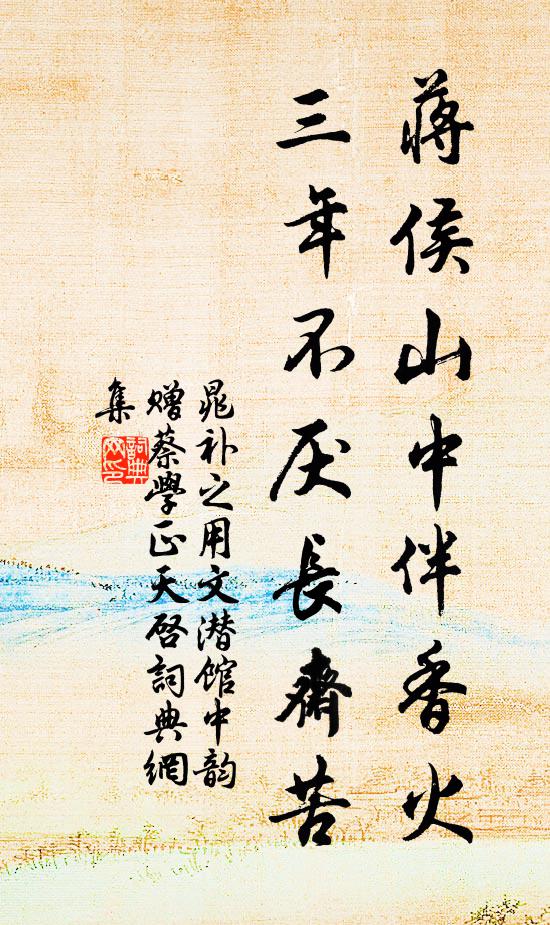 蔣侯山中伴香火
三年不厌長齋苦
晁补之用文潜馆中韵
赠蔡學正天啓詞典網
集
詞典